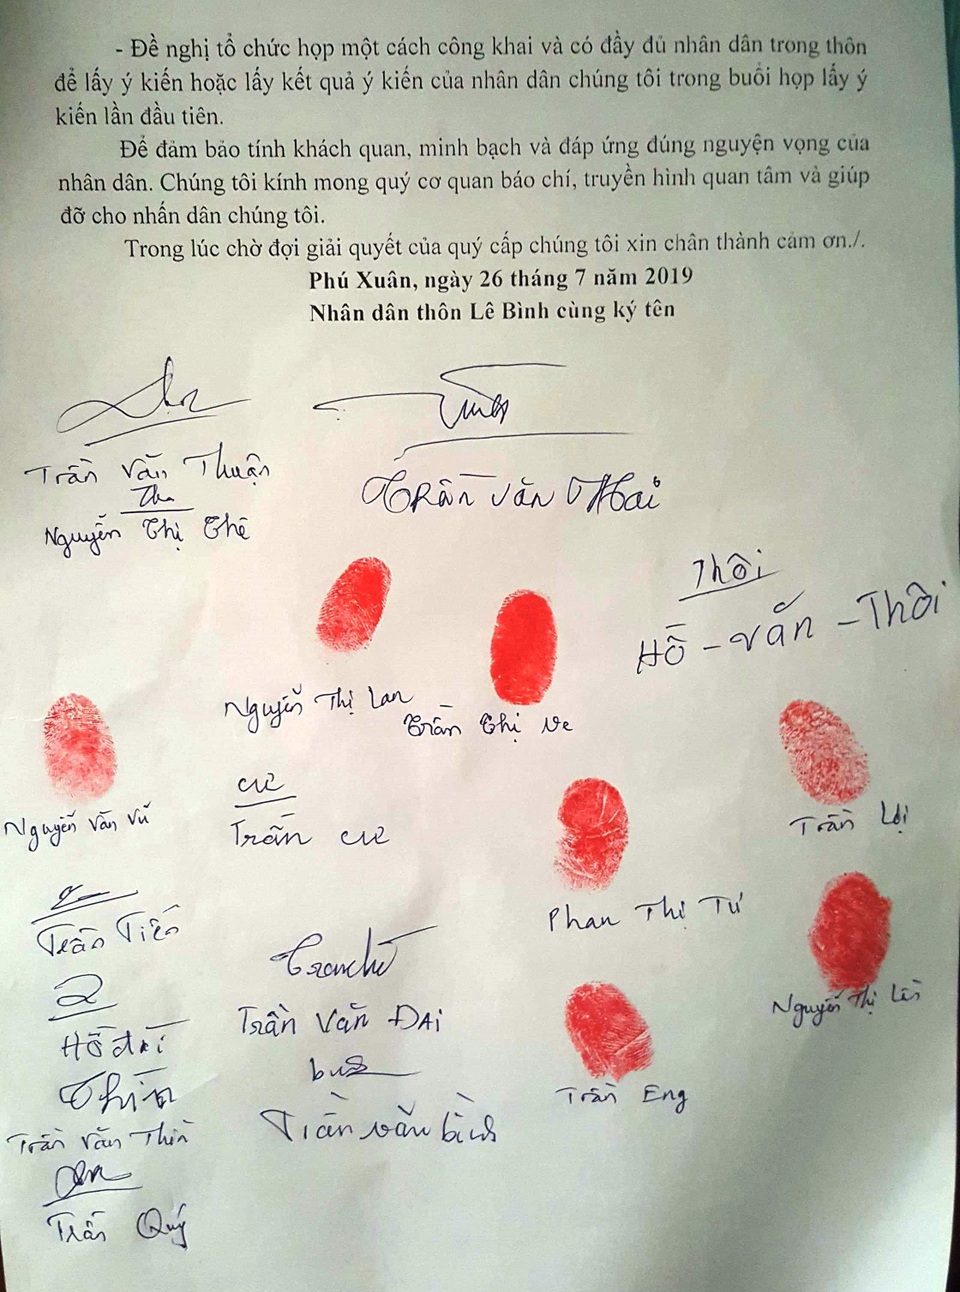 - Đề nghị tổ chức họp một cách công khai và có đầy đủ nhân dân trong thôn
để lấy ý kiến hoặc lấy kết quả ý kiến của nhân dân chúng tôi trong buổi họp lấy ý
kiến lần đầu tiên.
Để đảm bảo tính khách quan, minh bạch và đáp ứng đúng nguyện vọng của
nhân dân. Chúng tôi kính mong quý cơ quan báo chí, truyền hình quan tâm và giúp
đỡ cho nhấn dân chúng tôi.
Trong lúc chờ đợi giải quyết của quý cấp chúng tôi xin chân thành cảm ơn./.
Phú Xuân, ngày 26 tháng 7 năm 2019
Nhân dân thôn Lê Bình cùng ký tên
Trần Văn Thuận
Trần Văn Hai
Nguyễn Thị Thê
Thôi
Hồ - Văn - Thôi
Nguyễn Thị Lan
Trần Thị Ve
Nguyễn Văn Vũ
cư
Trần cư
Trần Lợi
Phan Thị Tư
Trần Tiến
Nguyễn Thị Liên
Trần Văn ĐAi
Hồ
Thìn
Trần Eng
Trần văn bình
Trần Văn Thìn
Trần Quý